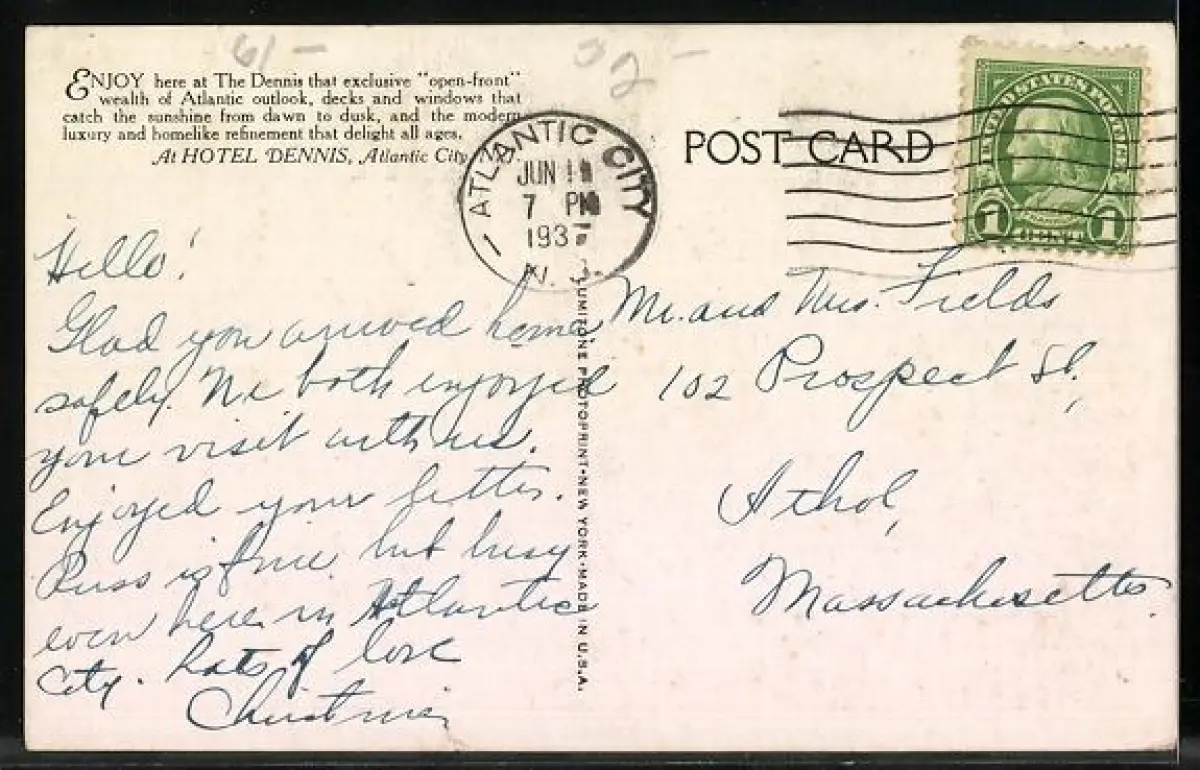 61 –
32 –
ENJOY here at The Dennis that exclusive "open-front"
wealth of Atlantic outlook, decks and windows that
catch the sunshine from dawn to dusk, and the modern
luxury and homelike refinement that delight all ages.
At HOTEL DENNIS, Atlantic City, N.J.
ATLANTIC CITY
JUN 11
7 PM
193
N. J.
POST CARD
UNITED STATES POSTAGE
1 1
Hello!
Glad you arrived home
safely. We both enjoyed
your visit with us.
Enjoyed your letter.
Russ is fine but busy
even here in Atlantic
City. Lots of love
Christine
LUMITONE PHOTOPRINT • NEW YORK • MADE IN U.S.A.
Mr. and Mrs. Fields
102 Prospect St.,
Athol,
Massachusetts.